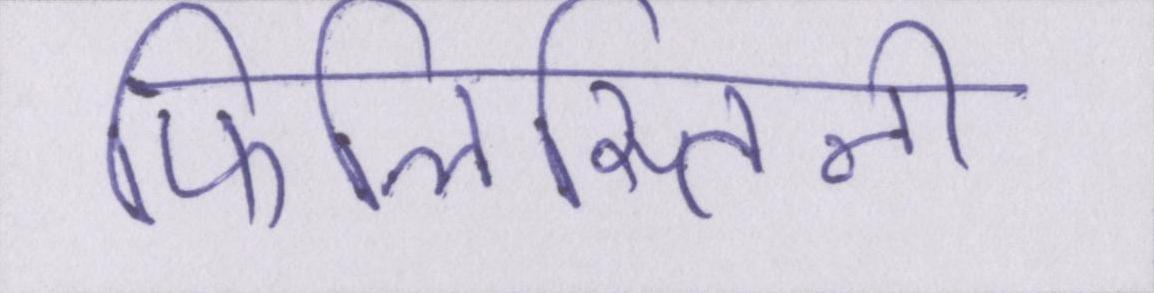 फिलिस्तिनी